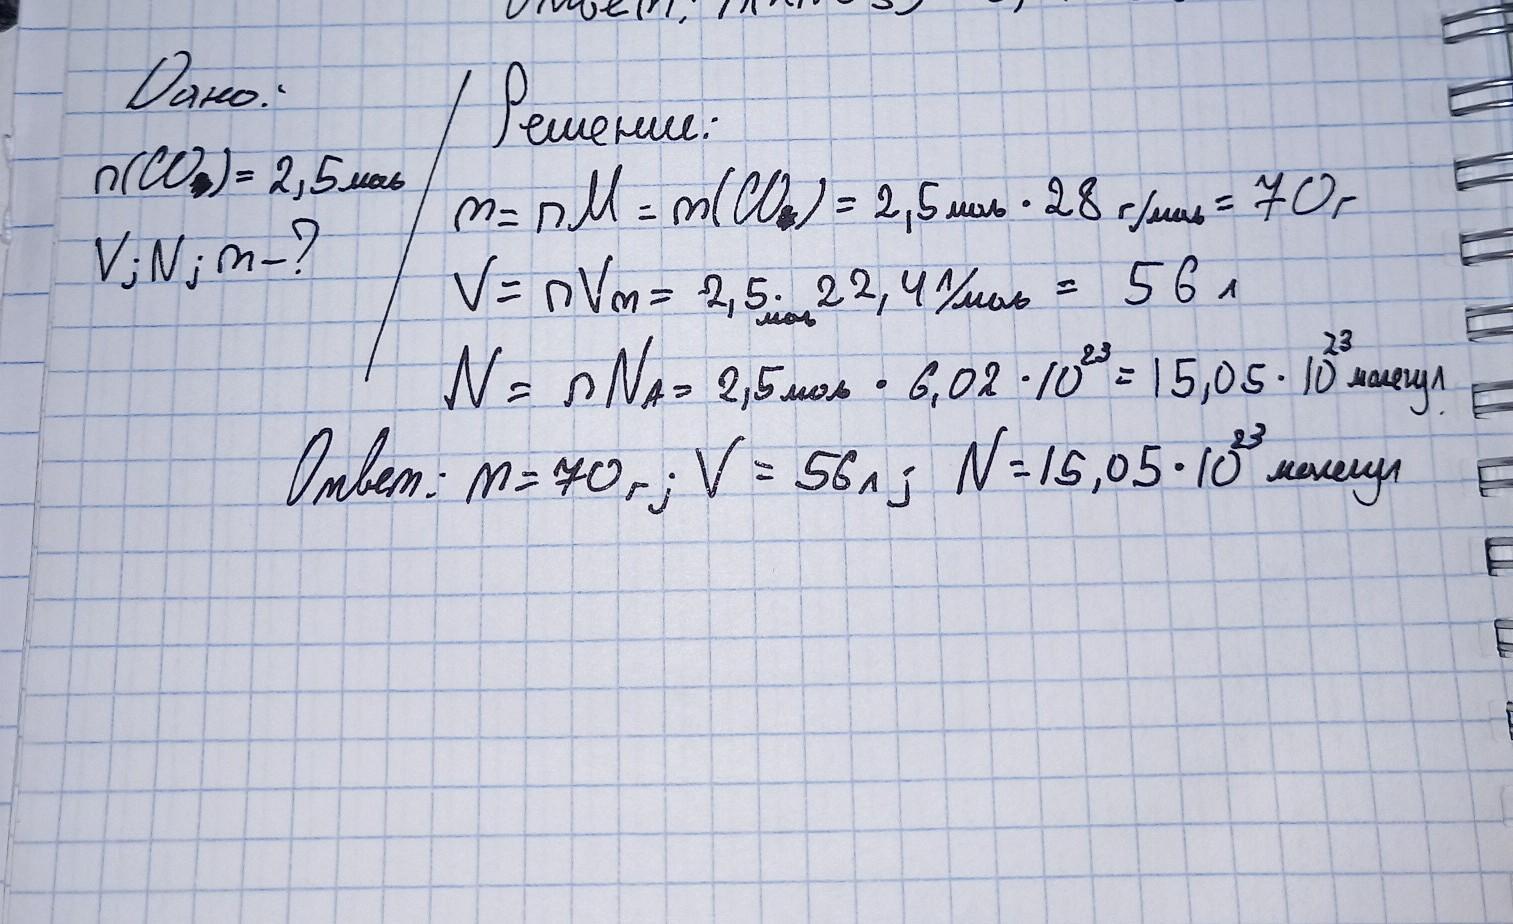 Ответ:
Дано:
n(CO) = 2,5 моль
V; N; m - ?
Решение:
m = nM = m(CO) = 2,5 моль · 28 г/моль = 70 г
V = nVm = 2,5 моль · 22,4 л/моль = 56 л
N = nNA = 2,5 моль · 6,02 · 10²³ = 15,05 · 10²³ молекул.
Ответ: m = 70 г; V = 56 л; N = 15,05 · 10²³ молекул